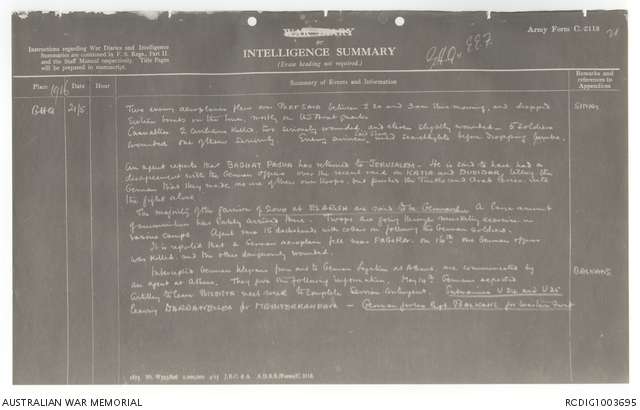 WAR DIARY
or
INTELLIGENCE SUMMARY
(Erase heading not required.)
Army Form C. 2118
Instructions regarding War Diaries and Intelligence
Summaries are contained in F. S. Regs., Part II.
and the Staff Manual respectively. Title Pages
will be prepared in manuscript.
Place
Date
Hour
Summary of Events and Information
Remarks and
references to
Appendices
1916
GHQ
21/5
Two enemy aeroplanes flew over PORT SAID between 2.20 and 3 am this morning, and dropped
sixteen bombs on the town, mostly on the Arab quarter.
Casualties 2 civilians killed, two seriously wounded, and eleven slightly wounded - 5 soldiers
wounded one of them seriously. Enemy used searchlights before dropping bombs.
SINAI
An agent reports that BAGHAT PASHA has returned to JERUSALEM. He is said to have had a
disagreement with the German officers over the recent raid on KATIA and DUEIDAR, telling the
Germans that they made no use of their own troops, but pushed the Turks and Arab forces into
the fight alone.
The majority of the garrison of 2000 at EL ARISH are said to be Germans. A large amount
of ammunition has lately arrived there. Troops are going through training exercise in
various camps. Agent saw 15 with on following the German soldiers.
It is reported that a German aeroplane fell near on 16th one German officer
was killed and the other dangerously wounded.
Intercepted German telegrams from and to German Legation at Athens are communicated by
an agent at Athens. They give the following information, May 19th German expected
artillery to leave next week to complete German contingent. Submarines U 34 and U 35
leaving DARDANELLES for MEDITERRANEAN - German forces BALKANS for western front
BALKANS
AUSTRALIAN WAR MEMORIAL
RCDIG1003695